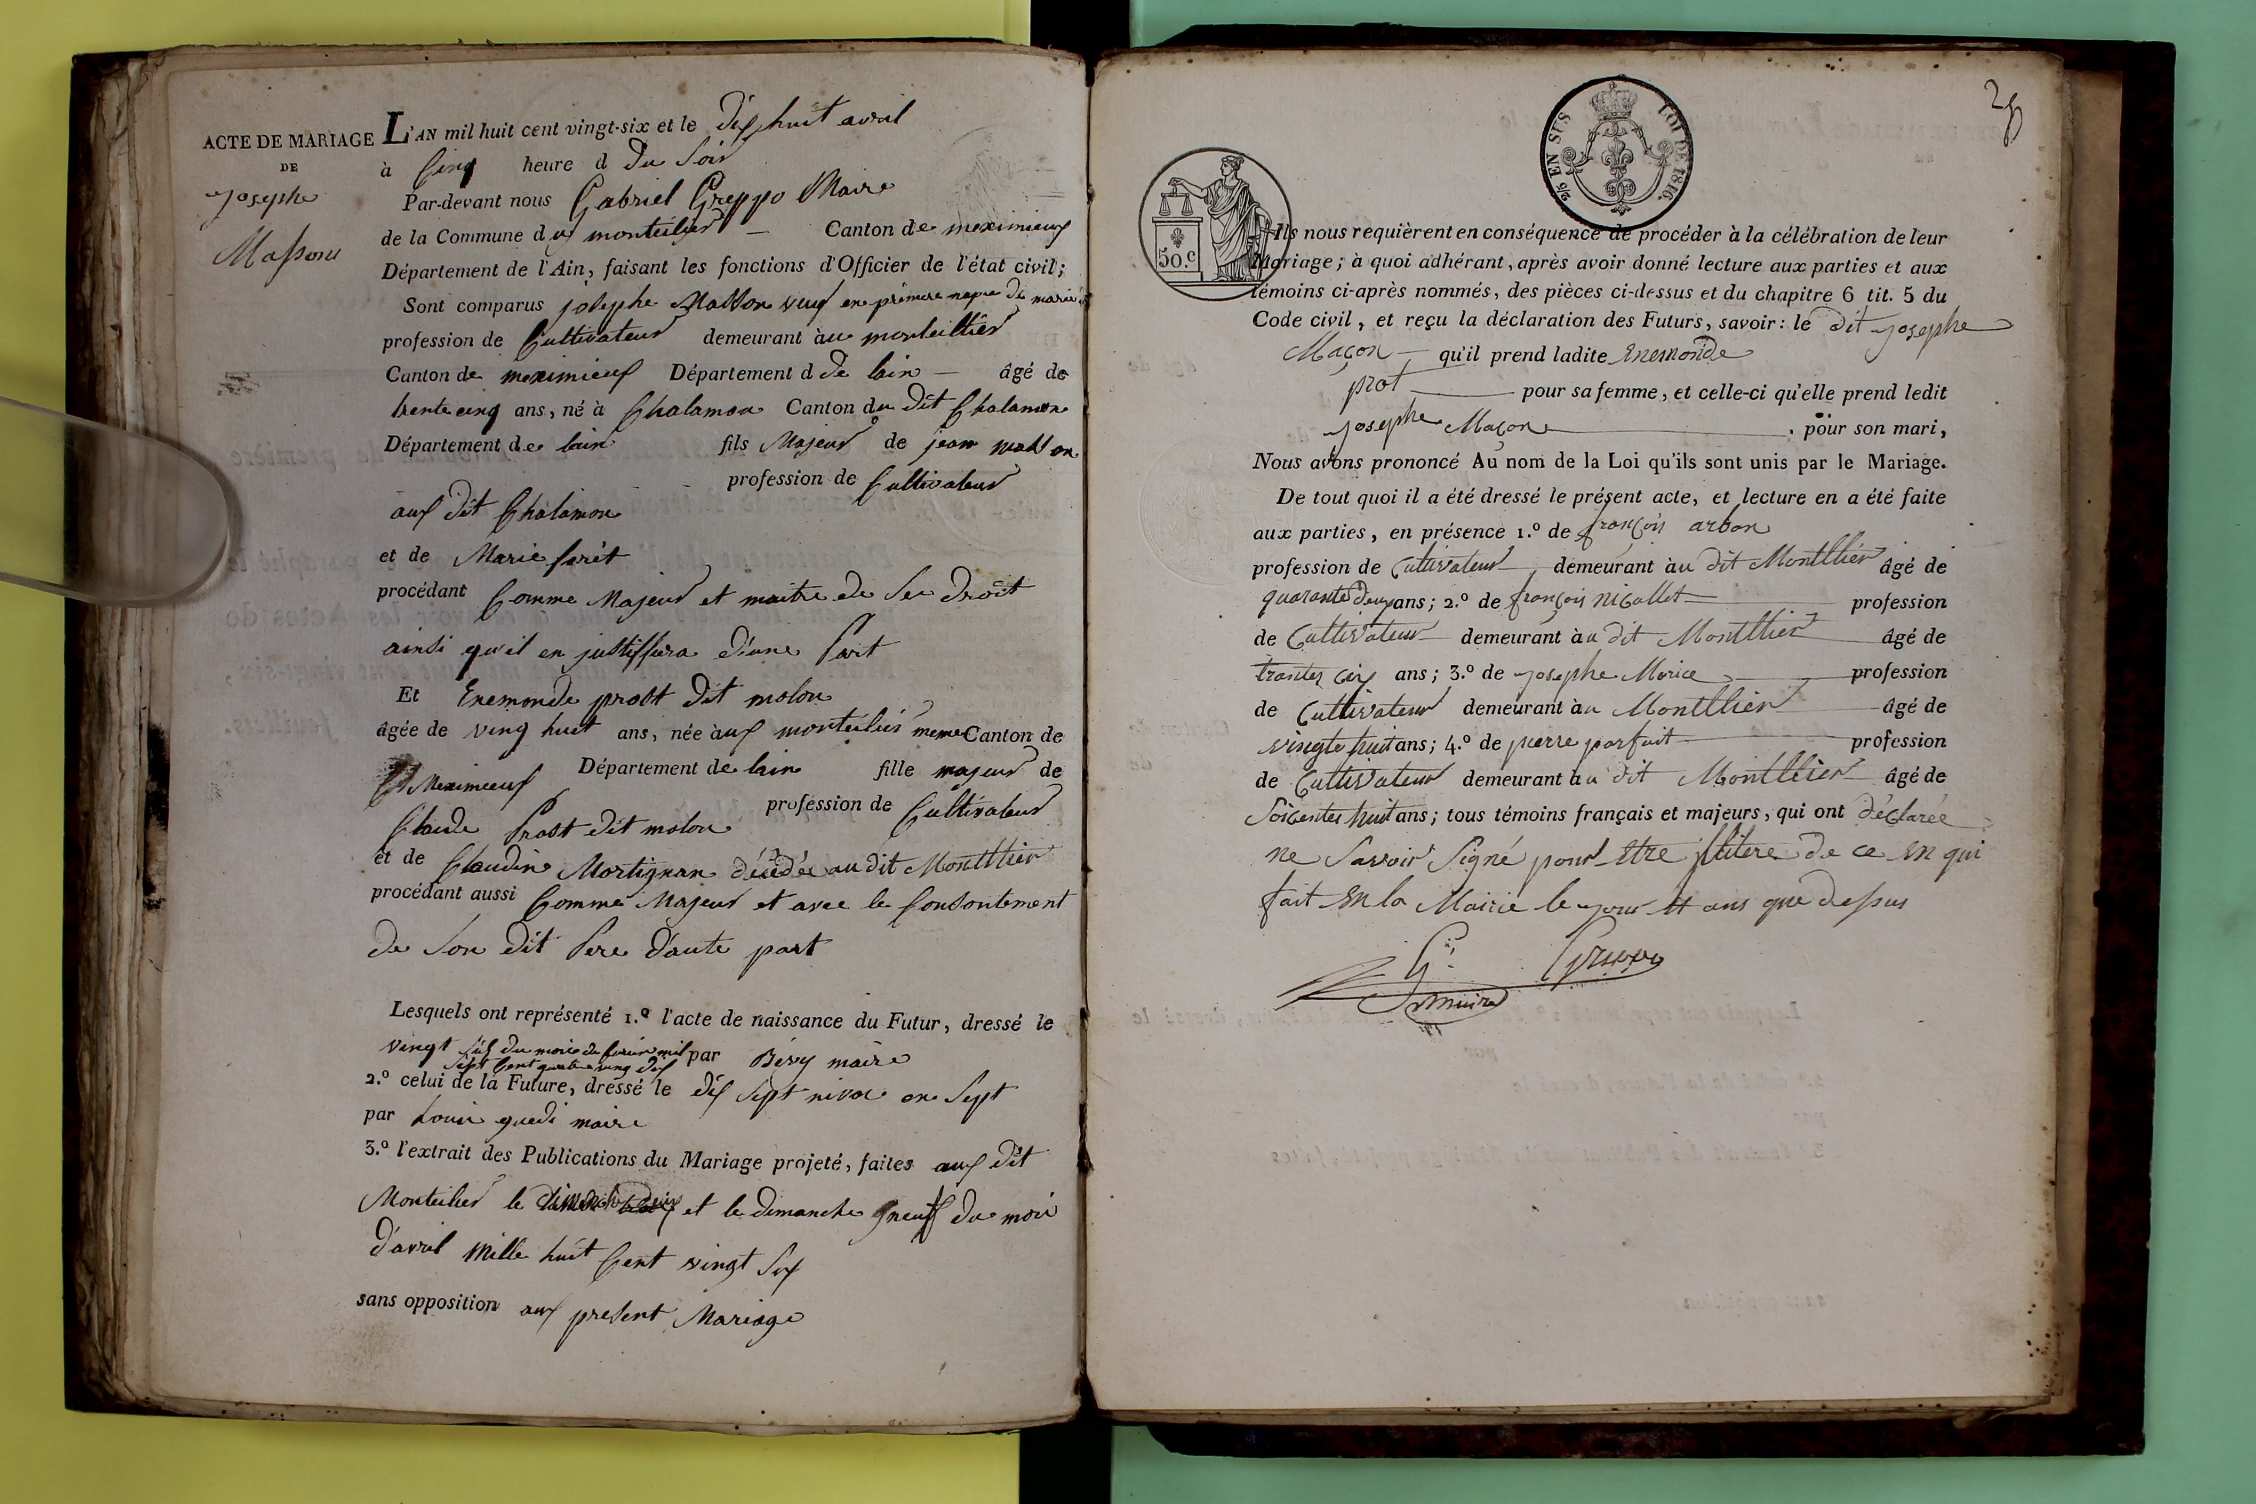 ACTE DE MARIAGE
DE
Josephe
Massonu
L'AN mil huit cent vingt-six et le dix huit avril
à Cinq heure d du Soir
Par-devant nous Gabriel Greppo Maire
de la Commune d ux monteilier Canton de meximieux
Département de l'Ain, faisant les fonctions d'Officier de l'état civil;
Sont comparus josephe Masson veuf en primere de
profession de Cultivateur demeurant àu monteillier
Canton de meximieux Département d de lain âgé de
trente cinq ans, né à Chalamon Canton du dit Chalamon
Département de lain fils Majeur de jean masson
profession de Cultivateur
aux dit Chalamon
et de Marie foret
procédant Comme Majeur et maitre de Se droit
ainsi qu'il en justiffiera d'une Part
Et Enemonde prost dit molon
âgée de ving huit ans, née àux monteilier meme Canton de
Meximieux Département de lain fille majeur de
Claude Prost dit molon profession de Cultivateur
et de Claudine Mortignan décédée au dit Montllier
procédant aussi Comme Majeur et avec le Consontement
de Son dit Pere d'aute part
Lesquels ont représenté 1.º l'acte de naissance du Futur, dressé le
vingt du mois de mil par Béry maire
Sept Cent quatre ving dix
2.º celui de la Future, dressé le dix Sept nivos en Sept
par Louis quedi maire
3.º l'extrait des Publications du Mariage projeté, faites aux dit
Monteilier le et le dimanche 9 neuf du moi
d'avril mille huit Cent vingt Six
sans opposition aux present Mariage
28
2/5 EN SUS
LOI DE 1816.
50.c
Ils nous requièrent en conséquence de procéder à la célébration de leur
Mariage; à quoi adhérant, après avoir donné lecture aux parties et aux
témoins ci-après nommés, des pièces ci-dessus et du chapitre 6 tit. 5 du
Code civil, et reçu la déclaration des Futurs, savoir: le dit Josephe
Maçon qu'il prend ladite Enemonde
prot pour sa femme, et celle-ci qu'elle prend ledit
Josephe Maçon pour son mari,
Nous avons prononcé Au nom de la Loi qu'ils sont unis par le Mariage.
De tout quoi il a été dressé le présent acte, et lecture en a été faite
aux parties, en présence 1.º de françois arbon
profession de Cultivateur demeurant àu dit Montllier âgé de
quarante deux ans; 2.º de françois nicollet profession
de Cultivateur demeurant àu dit Montllier âgé de
trantes cix ans; 3.º de Josephe Morice profession
de Cultivateur demeurant àu Montllier âgé de
vingte huit ans; 4.º de pierre parfait profession
de Cultivateur demeurant àu dit Montllier âgé de
Soicentes huit ans; tous témoins français et majeurs, qui ont déclarée
ne Savoir Signé pour Etre jllitere de ce En qui
fait En la Mairie le jour Et ans que dessus
G. Greppo
maire